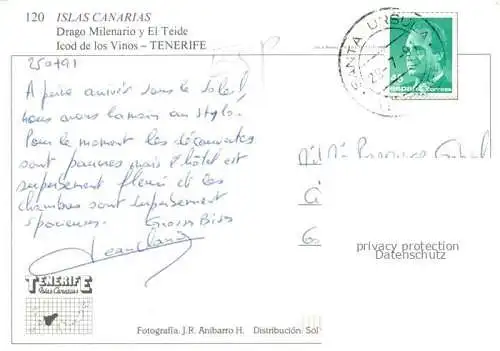 120 ISLAS CANARIAS
Drago Milenario y El Teide
Icod de los Vinos – TENERIFE
SANTA URSULA
España Correos
A peine arrivés sous le soleil
nous avons la main au stylo.
Pour le moment les découvertes
sont pauvres mais l'hôtel est
superbement fleuri et les
chambres sont superbement
spacieuses. Grosses Bises
Jean Claude
privacy protection
Datenschutz
TENERIFE
Islas Canarias
Fotografía: J.R. Anibarro H. Distribución: Sol